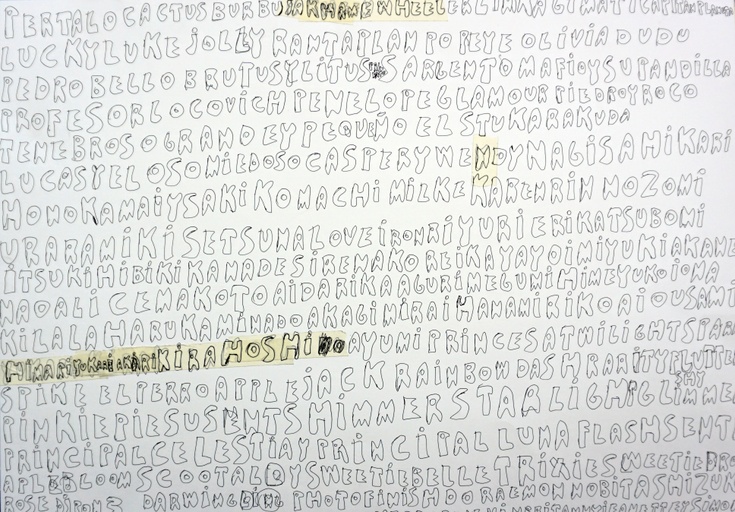 PERTALOCACTUSBURBUJAKHAMEWHEELERLINKAGIMATICAPITANPLANET
LUCKYLUKEJOLLYRANTAPLANPOPEYEOLIVIADUDU
PEDROBELLOBRUTUSYLITUSSARGENTOMAFIOYSUPANDILLA
PROFESORLOCOVICHPENELOPEGLAMOURPIEDROYROCO
TENEBROSOGRANDEYPEQUEÑOELSTUKARAKUDA
LUCASYELOSOMIEDOSOCASPERYWENDYNAGISAHIKARI
HONOKAMAIYSAKIKOMACHIMILKEKARENRINNOZOMI
URARAMIKISETSUNALOVEIRONRIYURIERIKATSUBOMI
ITSUKIHIBIKIKANADESIRENAKOREIKAYAYOIMIYUKIAKANE
NAOALICEMAKOTOAIDARIKAAGURIMEGUMIHIMEYUKOIONA
KILALAHARUKAMINADOAKAGIMIRAIHANAMIRIKOAIOUSAMI
HIMARIYUKARIAKARIKIRAHOSHINOAYUMIPRINCESATWILIGHTSPAR
SPIKEELPERROAPPLEJACKRAINBOWDASHRARITYFLUTTERSHY
PINKIEPIESUSENTSHIMMERSTARLIGHGLIMME
PRINCIPALCELESTIAYPRINCIPALLUNAFLASHSENT
APLEBLOOMSCOOTALOYSWEETIEBELLETRIXIESWEETIEDRO
DARWING PHOTOFINISHDORAEMONNOBITASHIZUK